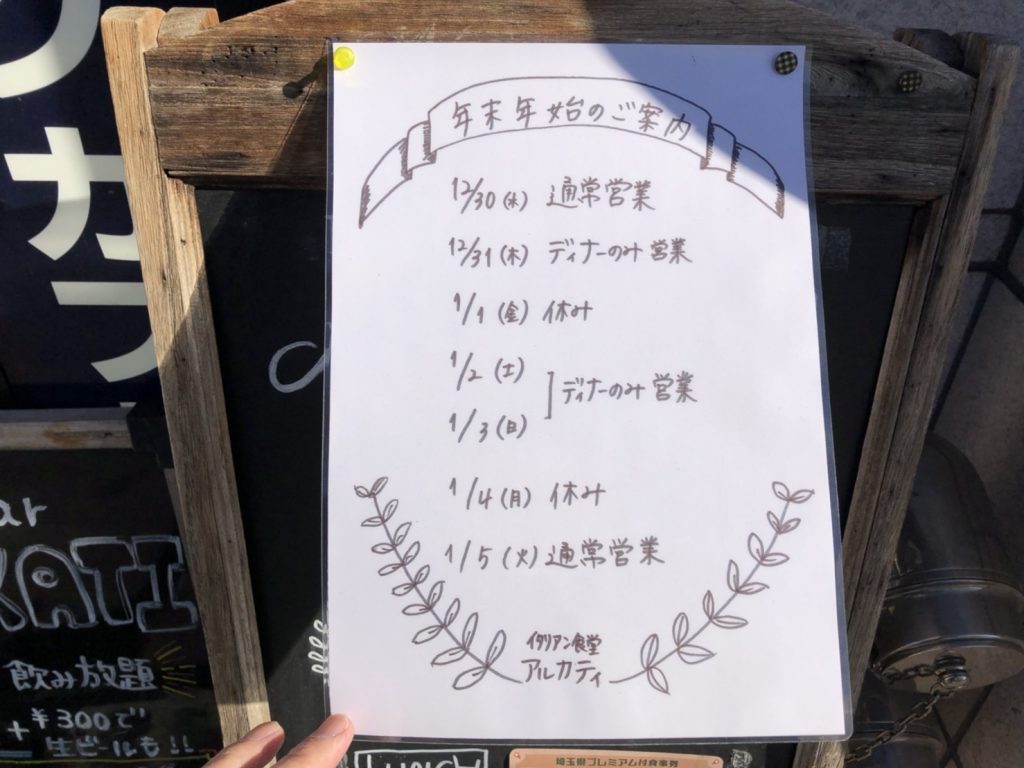 年末年始のご案内
12/30(水) 通常営業
12/31(木) ディナーのみ営業
1/1(金) 休み
1/2(土)
1/3(日)
ディナーのみ営業
1/4(月) 休み
1/5(火) 通常営業
イタリアン食堂
アルカティ
カ
ar
KATI
飲み放題
+¥300で
生ビールも!!
埼玉県プレミアム付食事券